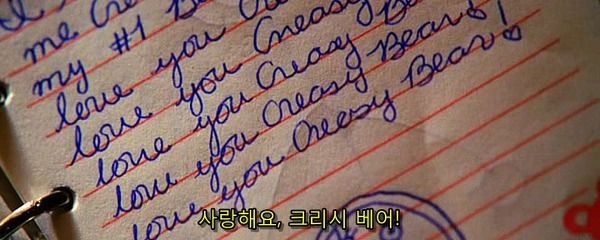 me Crea
my #1 Be
love you Crea
love you Creasy Be
love you Creasy Bear!
love you Creasy Bear!
love you Creasy
사랑해요, 크리시 베어!